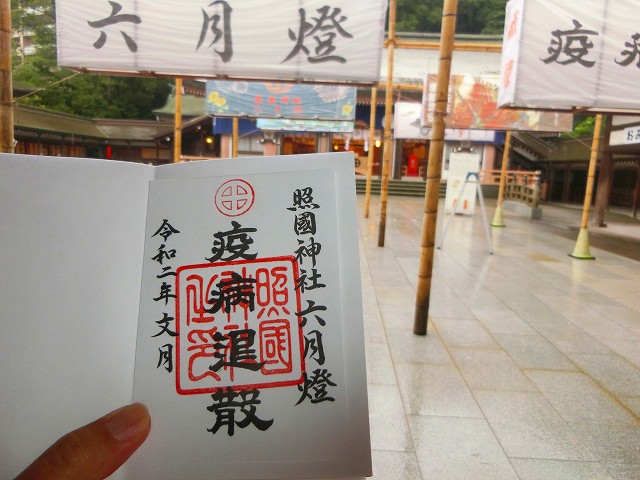 六月燈
疫病
おみ
照國神社 六月燈
疫病退散
令和二年 文月
照國
神社
之印